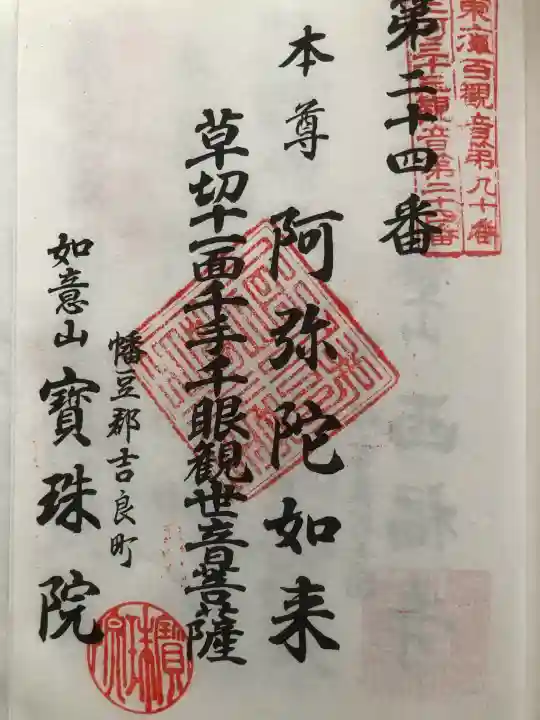 東海百觀音第九十番
三河三十三観音第二十四番
第二十四番
本尊 阿弥陀如来
草切十一面千手千眼観世音菩薩
幡豆郡吉良町
如意山 寶珠院
寶珠院